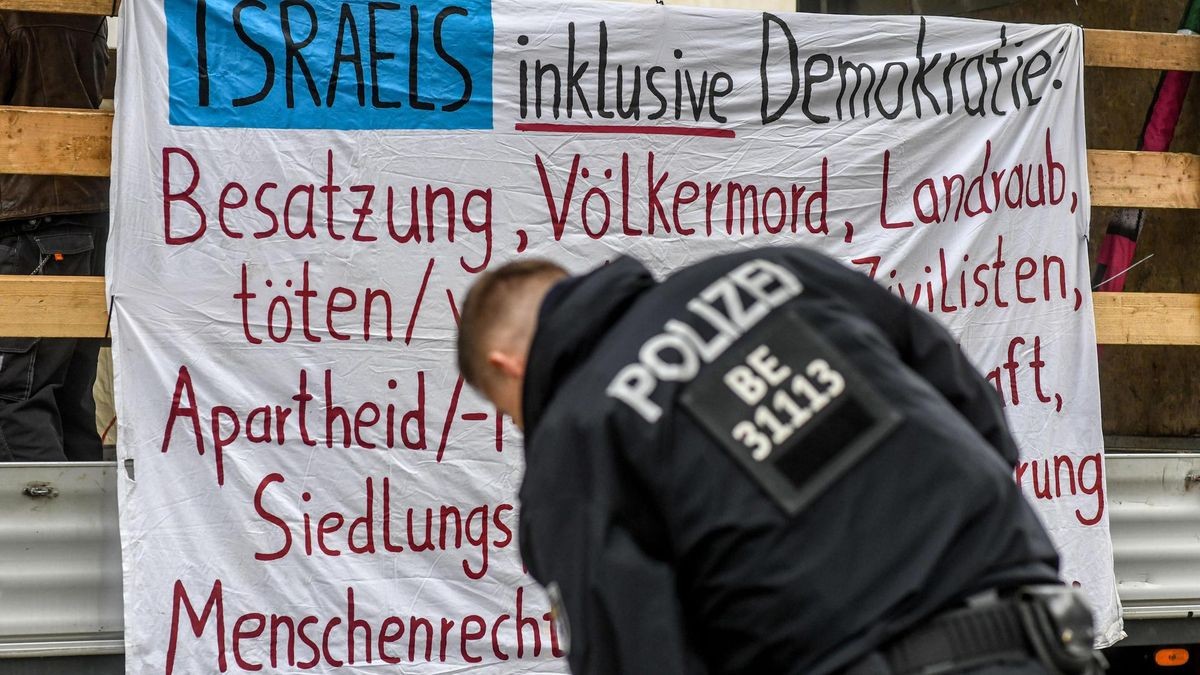 ISRAELS inklusive Demokratie:
Besatzung, Völkermord, Landraub,
töten/ Zivilisten,
Apartheid/-
Siedlungs
Menschenrecht
POLIZEI
BE
31113